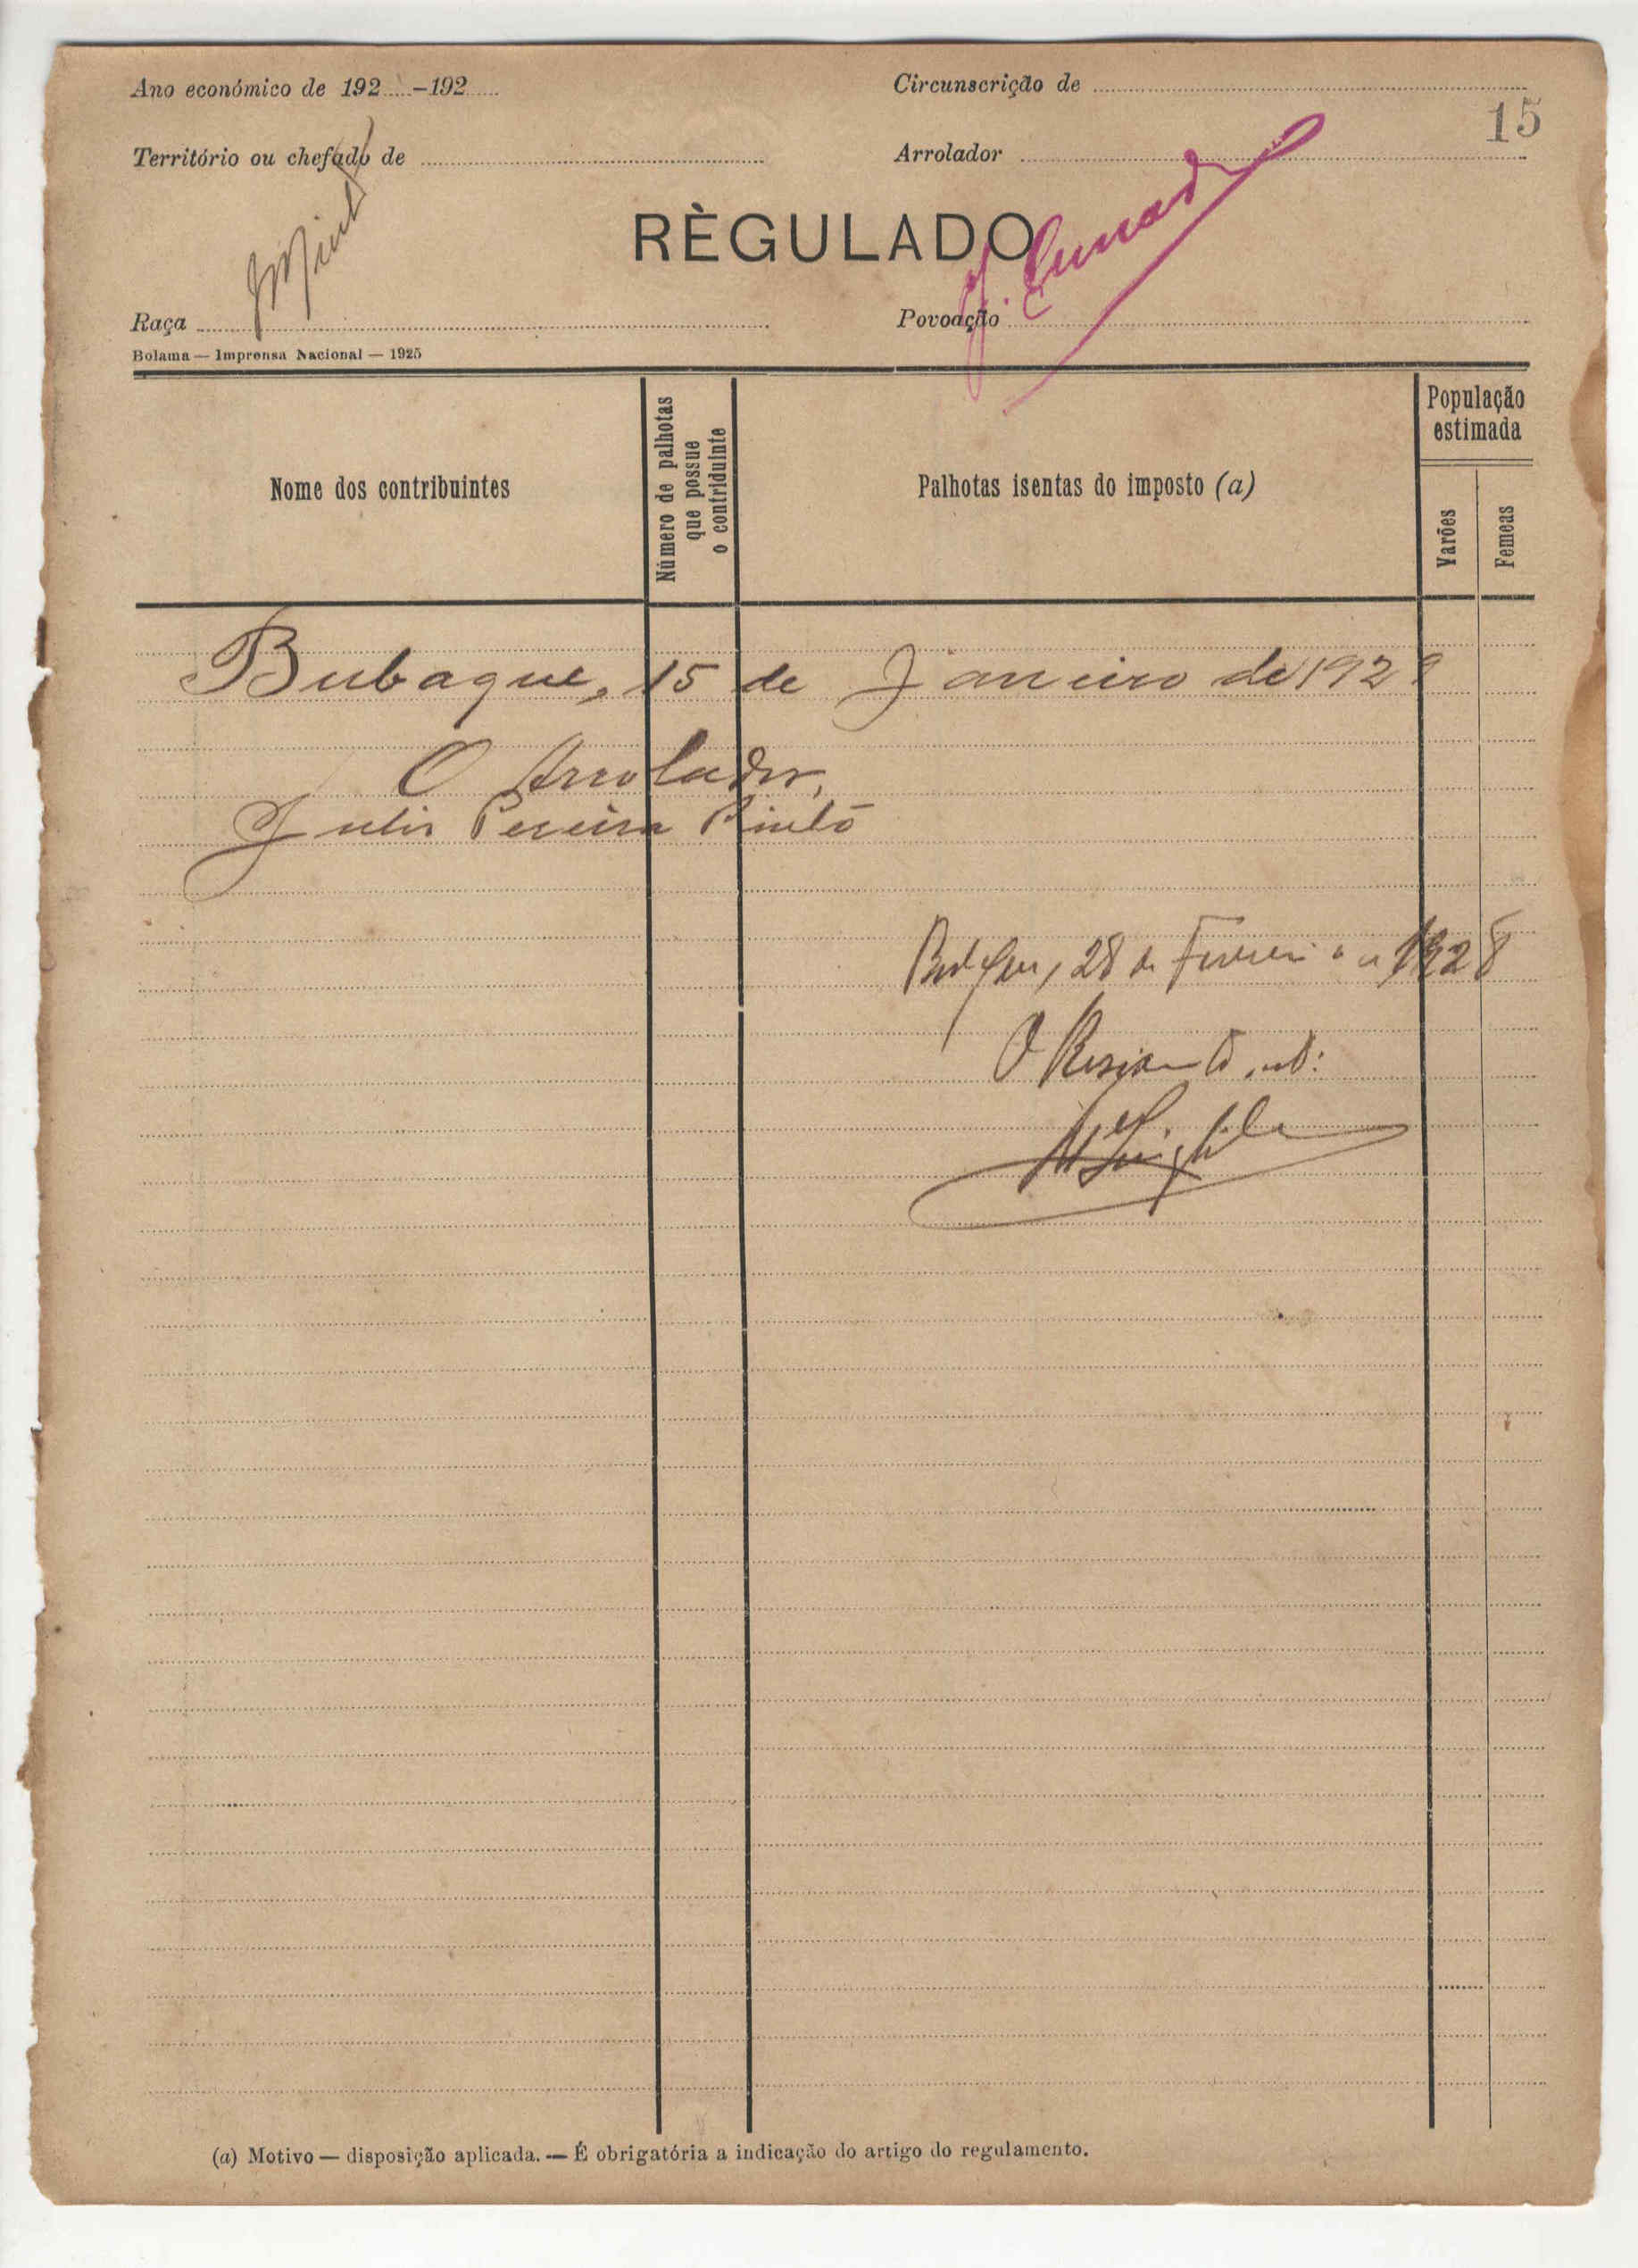 Ano económico de 192.....-192.....
Circunscrição de
15
Território ou chefado de
Arrolador
RÈGULADO
Raça
Povoação
Bolama — Imprensa Nacional — 1925
Nome dos contribuintes
Número de palhotas
que possue
o contriduinte
Palhotas isentas do imposto (a)
População
estimada
Varões
Femeas
Bubaque, 15 de Janeiro de 192
O Arrolador,
Julio Pereira Pinto
28 de Fevereiro de 1928
O
(a) Motivo — disposição aplicada. — É obrigatória a indicação do artigo do regulamento.